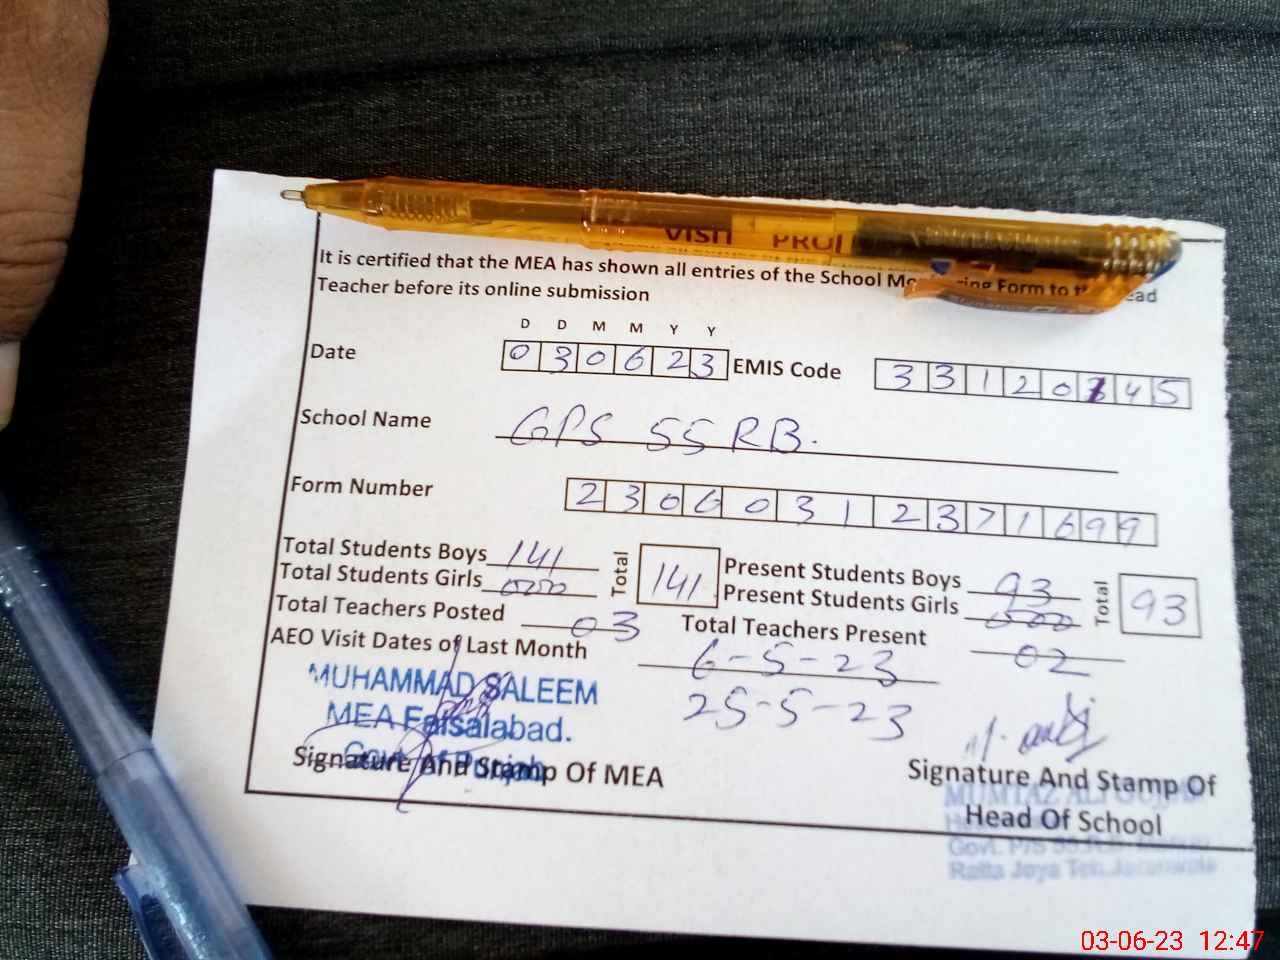 VISIT PRO
It is certified that the MEA has shown all entries of the School Form to the Head
Teacher before its online submission
D D M M Y Y
Date 0 3 0 6 2 3 EMIS Code 3 3 1 2 0 4 5
School Name GPS 55 RB.
Form Number 2 3 0 6 0 3 1 2 3 7 1 6 9 9
Total Students Boys 141 Total 141 Present Students Boys 93 Total 93
Total Students Girls 000 Present Students Girls 000
Total Teachers Posted 03 Total Teachers Present 02
AEO Visit Dates of Last Month 6-5-23
25-5-23
MUHAMMAD SALEEM
MEA Faisalabad.
Govt of Punjab
Signature And Stamp Of MEA
Signature And Stamp Of
Head Of School
MUMTAZ ALI
Govt. P/S 55
Ratta Joya Teh. Jaranwala
03-06-23 12:47